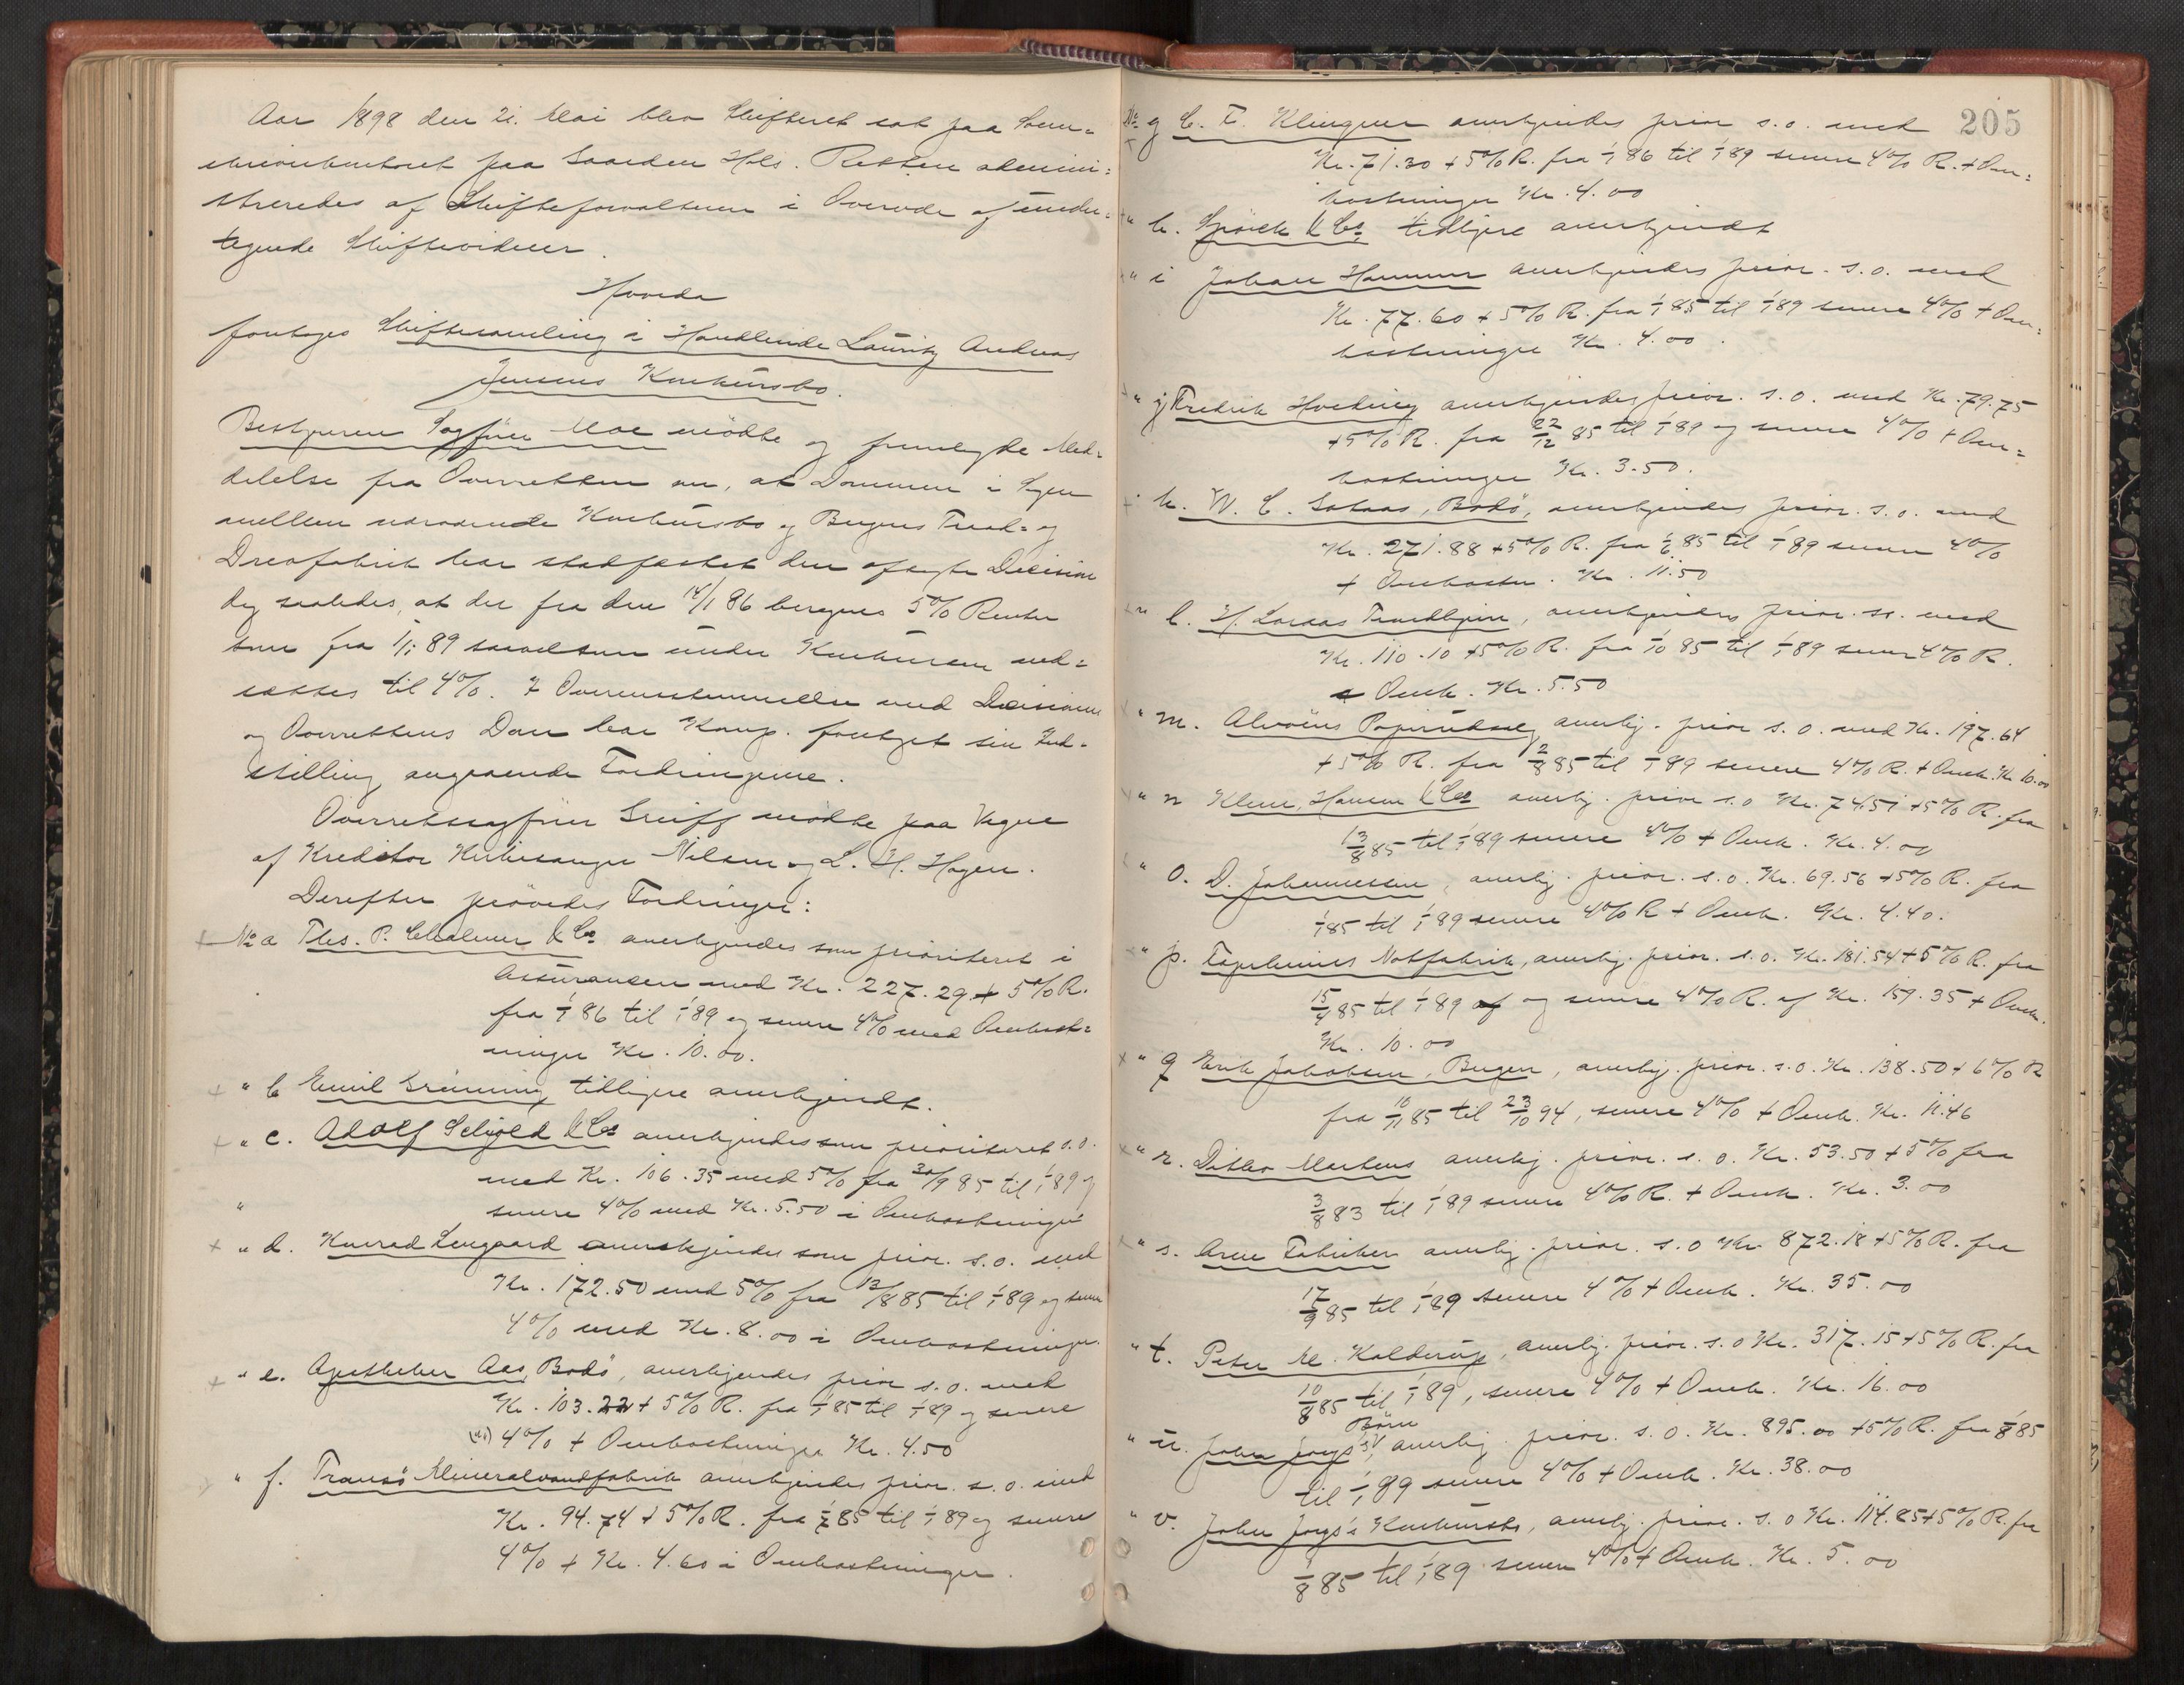 Aar 1898 den 21. Mai blev Skifteret sat paa Soren=
skriverkontoret paa Gaarden Hols. Retten admini=
streredes af Skifteforvalteren i Overvær af under=
tegnede Skiftevidner.
Hvorda
foretoges Skiftesamling i Handlende Lauritz Andreas
Jensens Konkursbo.
Bestyreren Sagfører Moe mødte og fremlagde Med=
delelse fra Overretten om, at Dommen i Sagen
mellem nærværende Konkursbo og Bergens Traad= og
Drevfabrik har stadfæstet den afsagte Decision
dog saaledes, at der fra den 14/1 86 beregnes 5% Renter
som fra 1/1 89 saavelsom under Konkursen ned=
sættes til 4%. I Overensstemmelse med Decisionen
og Overrettens Dom har Komp. foretaget sin Ind=
stilling angaaende Fordringerne.
Overretssagfører Greiff mødte paa Vegne
af Kreditor Kirkesanger Nilsen og L. H. Hagen.
Derefter prøvedes Fordringer:
No a Ths. P. Chalmer & Co anerkjendes som prioriteret i
Assurancen med Kr. 227.29 + 5% R.
fra 1/1 86 til 1/1 89 og senere 4% med Omkost=
ninger Kr. 10.00.
" b Emil Grünning tidligere anerkjendt.
" c. Adolf Schjeld & Co anerkjendes som prioriteret s.o.
med Kr. 106.35 med 5% fra 30/9 85 til 1/1 89 og
" senere 4% med Kr. 5.50 i Omkostninger
" d. Konrad Lengaard anerkjendes som prior. s.o. med
Kr. 172.50 med 5% fra 13/8 85 til 1/1 89 og senere
4% med Kr. 8.00 i Omkostninger.
" e. Apotheker Aas, Bodø, anerkjendes prior s.o. med
Kr. 103.22 + 5% R. fra 1/1 85 til 1/1 89 og senere
4% + Omkostninger Kr. 4.50
" f. Tromsø Mineralvandfabrik anerkjendes prior. s.o. med
Kr. 94.74 + 5% R. fra 1/7 85 til 1/1 89 og senere
4% + Kr. 4.60 i Omkostninger.
205
No g C. F. Klingner anerkjendes prior s.o. med
Kr. 71.30 + 5% R. fra 1/1 86 til 1/1 89 senere 4% R. + Om=
kostninger Kr. 4.00
" h. & Co tidligere anerkjendt
" i Johan Hammer anerkjendes prior. s.o. med
Kr. 77.60 + 5% R. fra 1/1 85 til 1/1 89 senere 4% + Om=
kostninger Kr. 4.00.
" j Fredrik anerkjendes prior. s.o. med Kr. 79.75
+ 5% R. fra 22/12 85 til 1/1 89 og senere 4% + Om=
kostninger Kr. 3.50.
" k. W. C. Bodø, anerkjendes prior. s.o. med
Kr. 271.88 + 5% R. fra 1/6 85 til 1/1 89 senere 4%
+ Omkostn. Kr. 11.50
" l. H. Trondhjem, anerkjendes prior. so. med
Kr. 110.10 + 5% R. fra 1/10 85 til 1/1 89 senere 4% R.
+ Omk. Kr. 5.50
" m. Alvøens Papirudsalg anerkj. prior s.o. med Kr. 197.64
+ 5% R. fra 2/8 85 til 1/1 89 senere 4% R. + Omk. Kr. 10.00
" n Klem, Hansen & Co anerkj. prior s.o Kr. 74.51 + 5% R. fra
13/8 85 til 1/1 89 senere 4% + Omk. Kr. 4.00
" o. D. Johannessen, anerkj. prior. s.o. Kr. 69.56 + 5% R. fra
1/1 85 til 1/1 89 senere 4% R + Omk. Kr. 4.40.
" p. Fagerheims Notfabrik, anerkj. prior. s.o. Kr. 181.54 + 5% R. fra
15/4 85 til 1/1 89 af og senere 4% R. af Kr. 159.35 + Omk.
Kr. 10.00
" q Erik Jakobsen, Bergen, anerkj. prior. s.o. Kr. 138.50 + 6% R
fra 10/11 85 til 23/10 94, senere 4% + Omk. Kr. 11.46
" r. Ditlev Martens anerkj. prior. s.o. Kr. 53.50 + 5% fra
3/8 83 til 1/1 89 senere 4% R. + Omk. Kr. 3.00
" s. Arne Fabriker anerkj. prior. s.o Kr. 872.18 + 5% R. fra
17/9 85 til 1/1 89 senere 4% + Omk. Kr. 35.00
" t. Peter M. Kolderup, anerkj. prior. s.o Kr. 317.15 + 5% R. fra
10/8 85 til 1/1 89, senere 4% + Omk. Kr. 16.00
" u. John Børn anerkj. prior. s.o. Kr. 895.00 + 5% R. fra 1/8 85
til 1/1 89 senere 4% + Omk. Kr. 38.00
" v. John Konkursbo, anerkj. prior. s.o Kr. 114.85 + 5% R. fra
1/8 85 til 1/1 89 senere 4% + Omk. Kr. 5.00